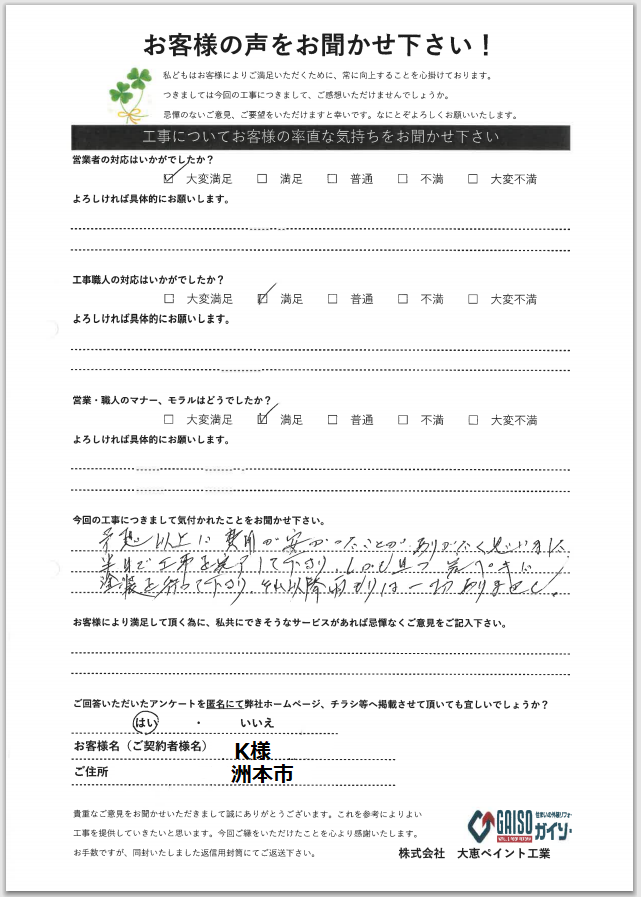 お客様の声をお聞かせ下さい！
私どもはお客様によりご満足いただくために、常に向上することを心掛けております。
つきましては今回の工事につきまして、ご感想いただけませんでしょうか。
忌憚のないご意見、ご要望をいただけますと幸いです。なにとぞよろしくお願いいたします。
工事についてお客様の率直な気持ちをお聞かせ下さい
営業者の対応はいかがでしたか？
☑ 大変満足 □ 満足 □ 普通 □ 不満 □ 大変不満
よろしければ具体的にお願いします。
工事職人の対応はいかがでしたか？
□ 大変満足 ☑ 満足 □ 普通 □ 不満 □ 大変不満
よろしければ具体的にお願いします。
営業・職人のマナー、モラルはどうでしたか？
□ 大変満足 ☑ 満足 □ 普通 □ 不満 □ 大変不満
よろしければ具体的にお願いします。
今回の工事につきまして気付かれたことをお聞かせ下さい。
予想以上に費用が安かったことがありがたく思いました
半日で工事を完了して下さり、しかも且つ
塗装を行って下さり、それ以降雨もりは一切ありません。
お客様により満足して頂く為に、私共にできそうなサービスがあれば忌憚なくご意見をご記入下さい。
ご回答いただいたアンケートを匿名にて弊社ホームページ、チラシ等へ掲載させて頂いても宜しいでしょうか？
はい ・ いいえ
お客様名（ご契約者様名） K様
ご住所 洲本市
貴重なご意見をお聞かせいただきまして誠にありがとうございます。これを参考によりよい
工事を提供していきたいと思います。今回ご縁をいただけたことを心より感謝いたします。
お手数ですが、同封いたしました返信用封筒にてご返送下さい。
GAISO
住まいの外装リフォ
ガイソー
株式会社 大恵ペイント工業